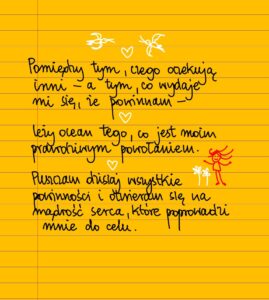 Pomiędzy tym, czego oczekują
inni – a tym, co wydaje
mi się, że powinnam –
leży ocean tego, co jest moim
prawdziwym powołaniem.
Puszczam dzisiaj wszystkie
powinności i otwieram się na
mądrość serca, które poprowadzi
mnie do celu.